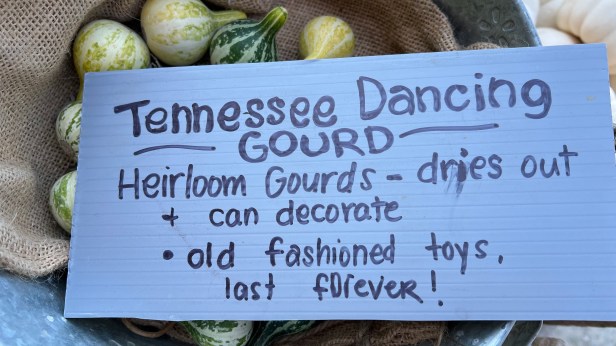 Tennessee Dancing
GOURD
Heirloom Gourds - dries out
+ can decorate
• old fashioned toys,
last forever!